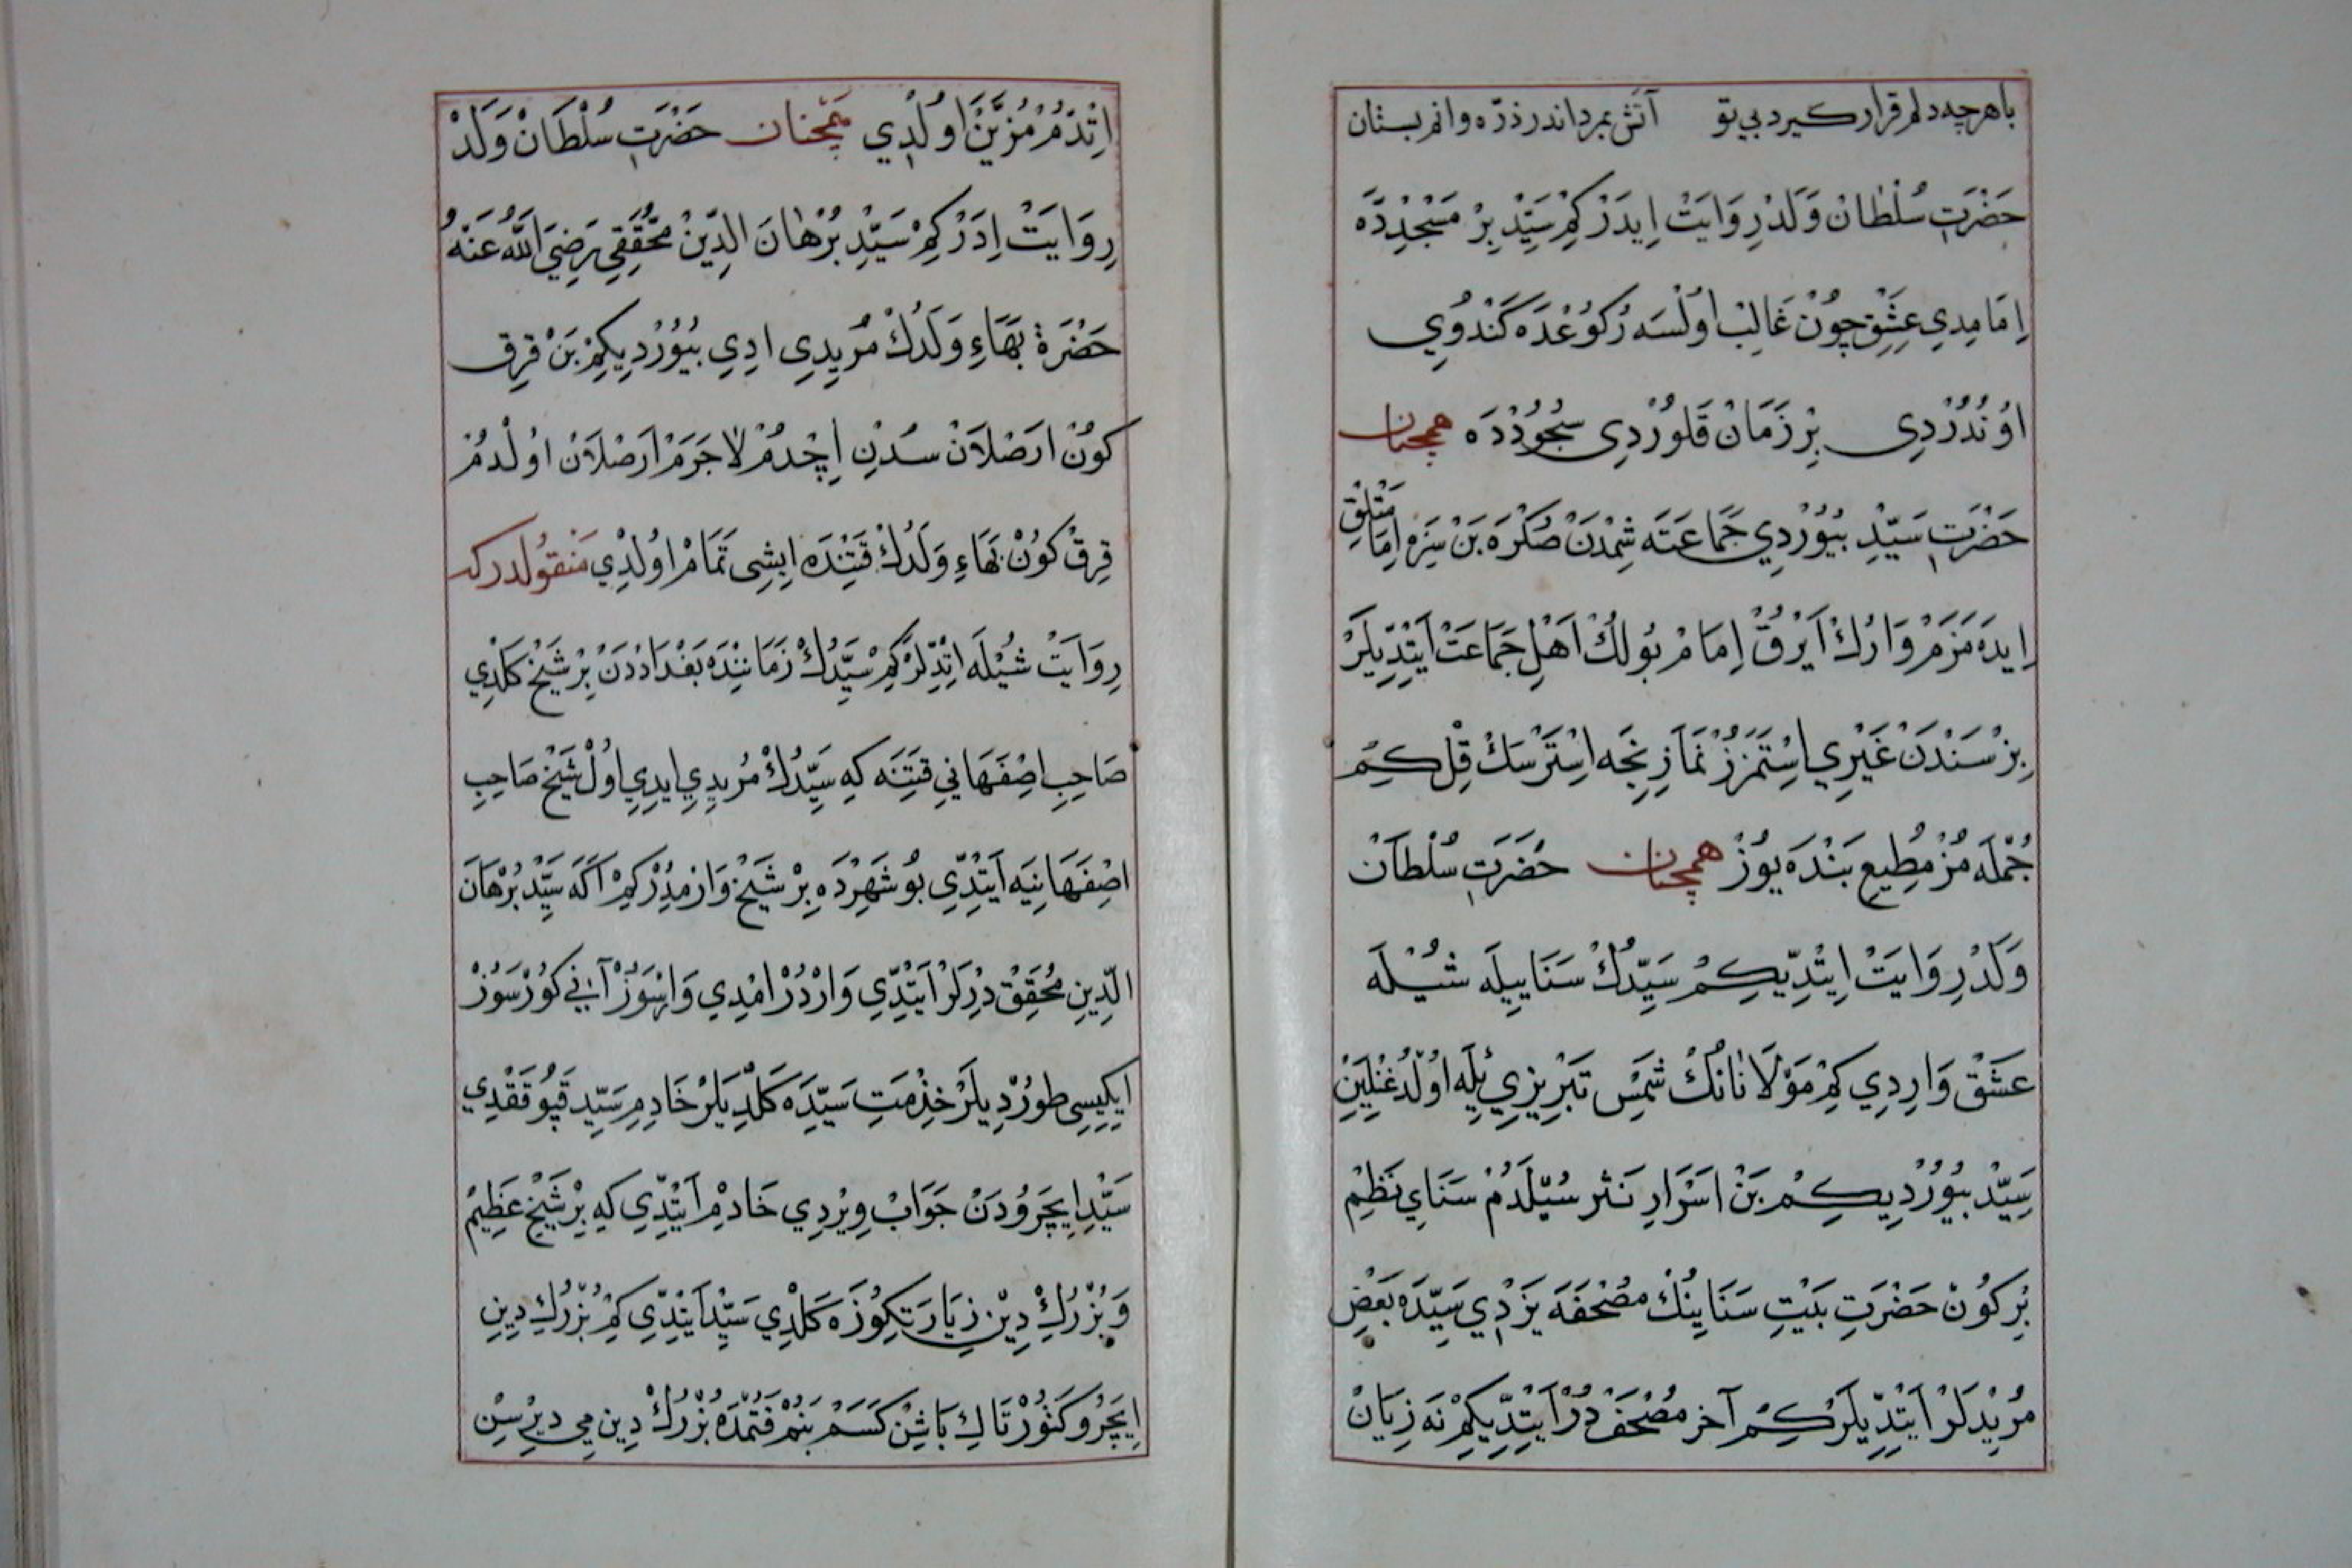 باهرچه دلم قرار كيرد بي تو آتش بمرد اندر ذرّه وانم بستان
حَضْرَتِ سُلْطَانْ وَلَدْ رِوَايَتْ اِيدَرْ كِمْ سَيِّدْ بِرْ مَسْجِدْدَه
اِمَامِدِي عِشْقْ چُونْ غَالِبْ اُولْسَه رُكُوعْدَه كَنْدُويِ
اوُنُدُرْدِي بِرْ زَمَانْ قَلُورْدِي سُجُودْدَه همچنان
حَضْرَتِ سَيِّدْ بُيُورْدِي جَمَاعَتَه شِمْدَنْ صُكْرَه بَنْ سِزَه اِمَامَتْلِقْ
اِيدَه مَزَمْ وَارُكْ اَيْرُقْ اِمَامْ بُولُكْ اَهْلِ جَمَاعَتْ اَيْتْدِيلَرْ
بِزْ سَنْدَنْ غَيْرِي اسْتَمَزُزْ نَمَازِ نِجَه اسْتَرْسَكْ قِلْ كِمْ
جُمْلَه مُزْ مُطِيعِ بَنْدَه يُوزْ همچنان حَضْرَتِ سُلْطَانْ
وَلَدْ رِوَايَتْ اِيتْدِيكِمْ سَيِّدُكْ سَنَايِيلَه شُيْلَه
عَشَقْ وَارِدِي كِمْ مَوْلَانَانُكْ شَمْسِ تَبْرِيزِي ئِيلَه اوُلْدُغْنِلَيِنْ
سَيِّدْ بُيُورْدِيكِمْ بَنْ اسْرَارِ نَثر سُيْلَدُمْ سَنَايِ نَظِمْ
بِرْ كُونْ حَضْرَتِ بَيْتِ سَنَايِنُكْ مُصْحَفَه يَزْدِي سَيِّدَه بَعْضِ
مُرِيدْلَرْ اَيْتْدِيلَرْ كِمْ آخر مُصْحَفْ دُرْ اَيْتْدِيكِمْ نَه زِيَانْ
اِتْدُمْ مُزَيَّنْ اوُلْدِي همچنان حَضْرَتِ سُلْطَانْ وَلَدْ
رِوَايَتْ اِدَرْ كِمْ سَيِّدْ بُرْهَانَ الدِّينْ مُحَقِّقِي رَضِيَ اللَّهُ عَنْهُ
حَضْرَةِ بَهَاءِ وَلَدُكْ مُرِيدِي ادِي بُيُورْدِيكِمْ بَنْ قِرِق
كُونْ ارَصْلَانْ سُدْنِ اِچْدُمْ لَاجَرَمْ اَرَصْلَانْ اوُلْدُمْ
قِرِقْ كُونْ بَهَاءِ وَلَدُكْ قَتِنْدَه اِيشِى تَمَامْ اوُلْدِي مَنقُولدركه
رِوَايَتْ شُيْلَه اِتْدِلَرْ كِمْ سَيِّدُكْ زَمَانِنْدَه بَغْدَادْدَنْ بِرْ شَيْخْ كَلْدِي
صَاحِبِ اِصْفَهَانِي قَتِنَه كِه سَيِّدُكْ مُرِيدِي ايدِي اوُلْ شَيْخْ صَاحِبِ
اصْفَهَانِيَه اَيْتْدِي بُو شَهِرْدَه بِرْ شَيْخْ وَارْمِدُرْ كِمْ اَكَه سَيِّدْ بُرْهَانَ
الدِّينِ مُحَقِّقْ دِرْلَرْ اَيْتْدِي وَارْدُرْ امْدِي وَارْسَوُزْ آنِي كُورْسَوُزْ
ايكِيسِى طُورْدِيلَرْ خِذْمَتِ سَيِّدَه كَلْدِيلَرْ خَادِمِ سَيِّدْ قَپُو قَقْدِي
سَيِّدْ اِيچَرُودَنْ جَوَابْ وِيرْدِي خَادِمْ اَيْتْدِي كِه بِرْ شَيْخْ عَظِيمْ
وَبُزْرُكِ دِينْ زِيَارَتِكُوزَه كَلْدِي سَيِّدْ اَيْتْدِي كِمْ بُزْرُكِ دِينِ
اِيچَرُو كَتُورْ تَاكِ بَاشِنْ كَسَمْ بَنُمْ قَتُمْدَه بُزْرُكْ دِينْ مِي دِيرْسِنْ